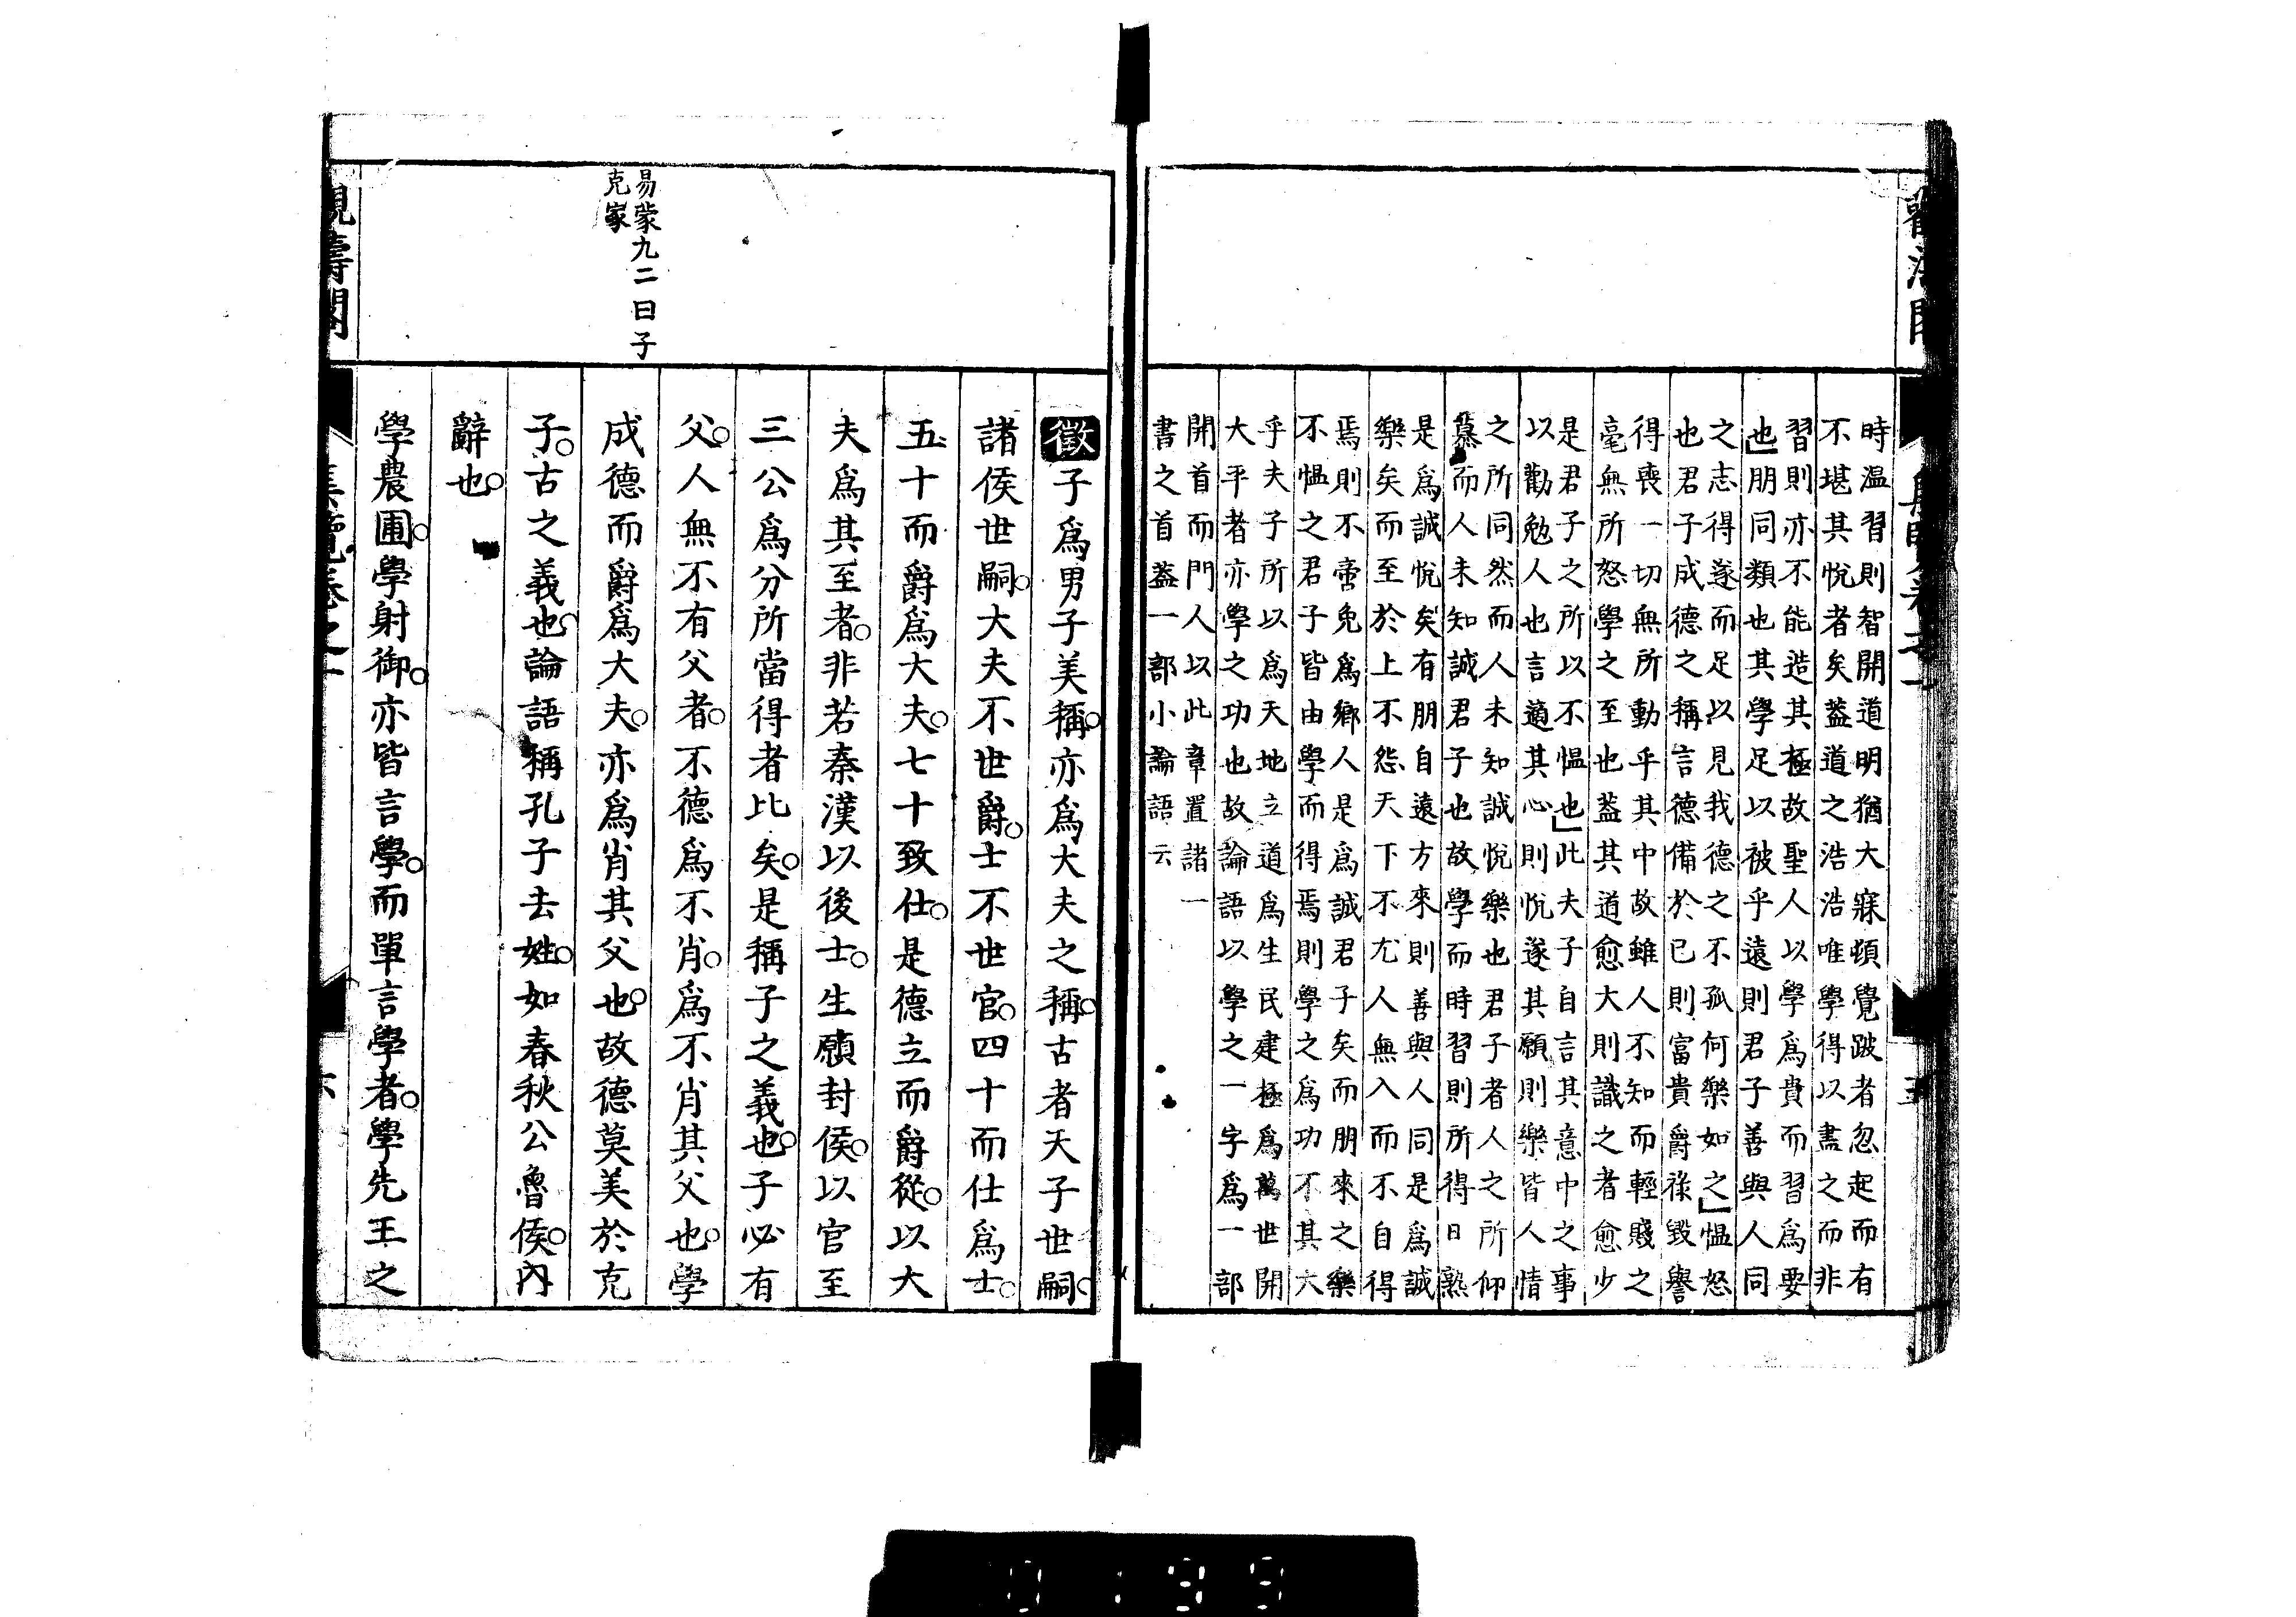 時温習則智開道明猶大寐頓覺跛者忽起而有
不堪其悅者矣蓋道之浩浩唯學得以盡之而非
習則亦不能造其極故聖人以學爲貴而習爲要
也朋同類也其學足以被乎遠則君子善與人同
之志得遂而足以見我德之不孤何樂如之慍怒
也君子成德之稱言德備於已則富貴爵祿毀譽
得喪一切無所動乎其中故雖人不知而輕賤之
毫無所怒學之至也蓋其道愈大則識之者愈少
是君子之所以不慍也此夫子自言其意中之事
以勸勉人也言適其心則悅遂其願則樂皆人情
之所同然而人未知誠悅樂也君子者人之所仰
慕而人未知誠君子也故學而時習則所得日熟
是爲誠悅矣有朋自遠方來則善與人同是爲誠
樂矣而至於上不怨天下不尤人無入而不自得
焉則不啻免爲鄉人是爲誠君子矣而朋來之樂
不慍之君子皆由學而得焉則學之爲功不其大
乎夫子所以爲天地立道爲生民建極爲萬世開
大平者亦學之功也故論語以學之一字爲一部
開首而門人以此章置諸一
書之首蓋一部小論語云
徵子爲男子美稱亦爲大夫之稱古者天子世嗣
諸侯世嗣大夫不世爵士不世官四十而仕爲士
五十而爵爲大夫七十致仕是德立而爵從以大
夫爲其至者非若秦漢以後士生願封侯以官至
三公爲分所當得者比矣是稱子之義也子必有
父人無不有父者不德爲不肖爲不肖其父也學
成德而爵爲大夫亦爲肖其父也故德莫美於克
子古之義也論語稱孔子去姓如春秋公魯侯內
辭也
學農圃學射御亦皆言學而單言學者學先王之
易蒙九二曰子
克家